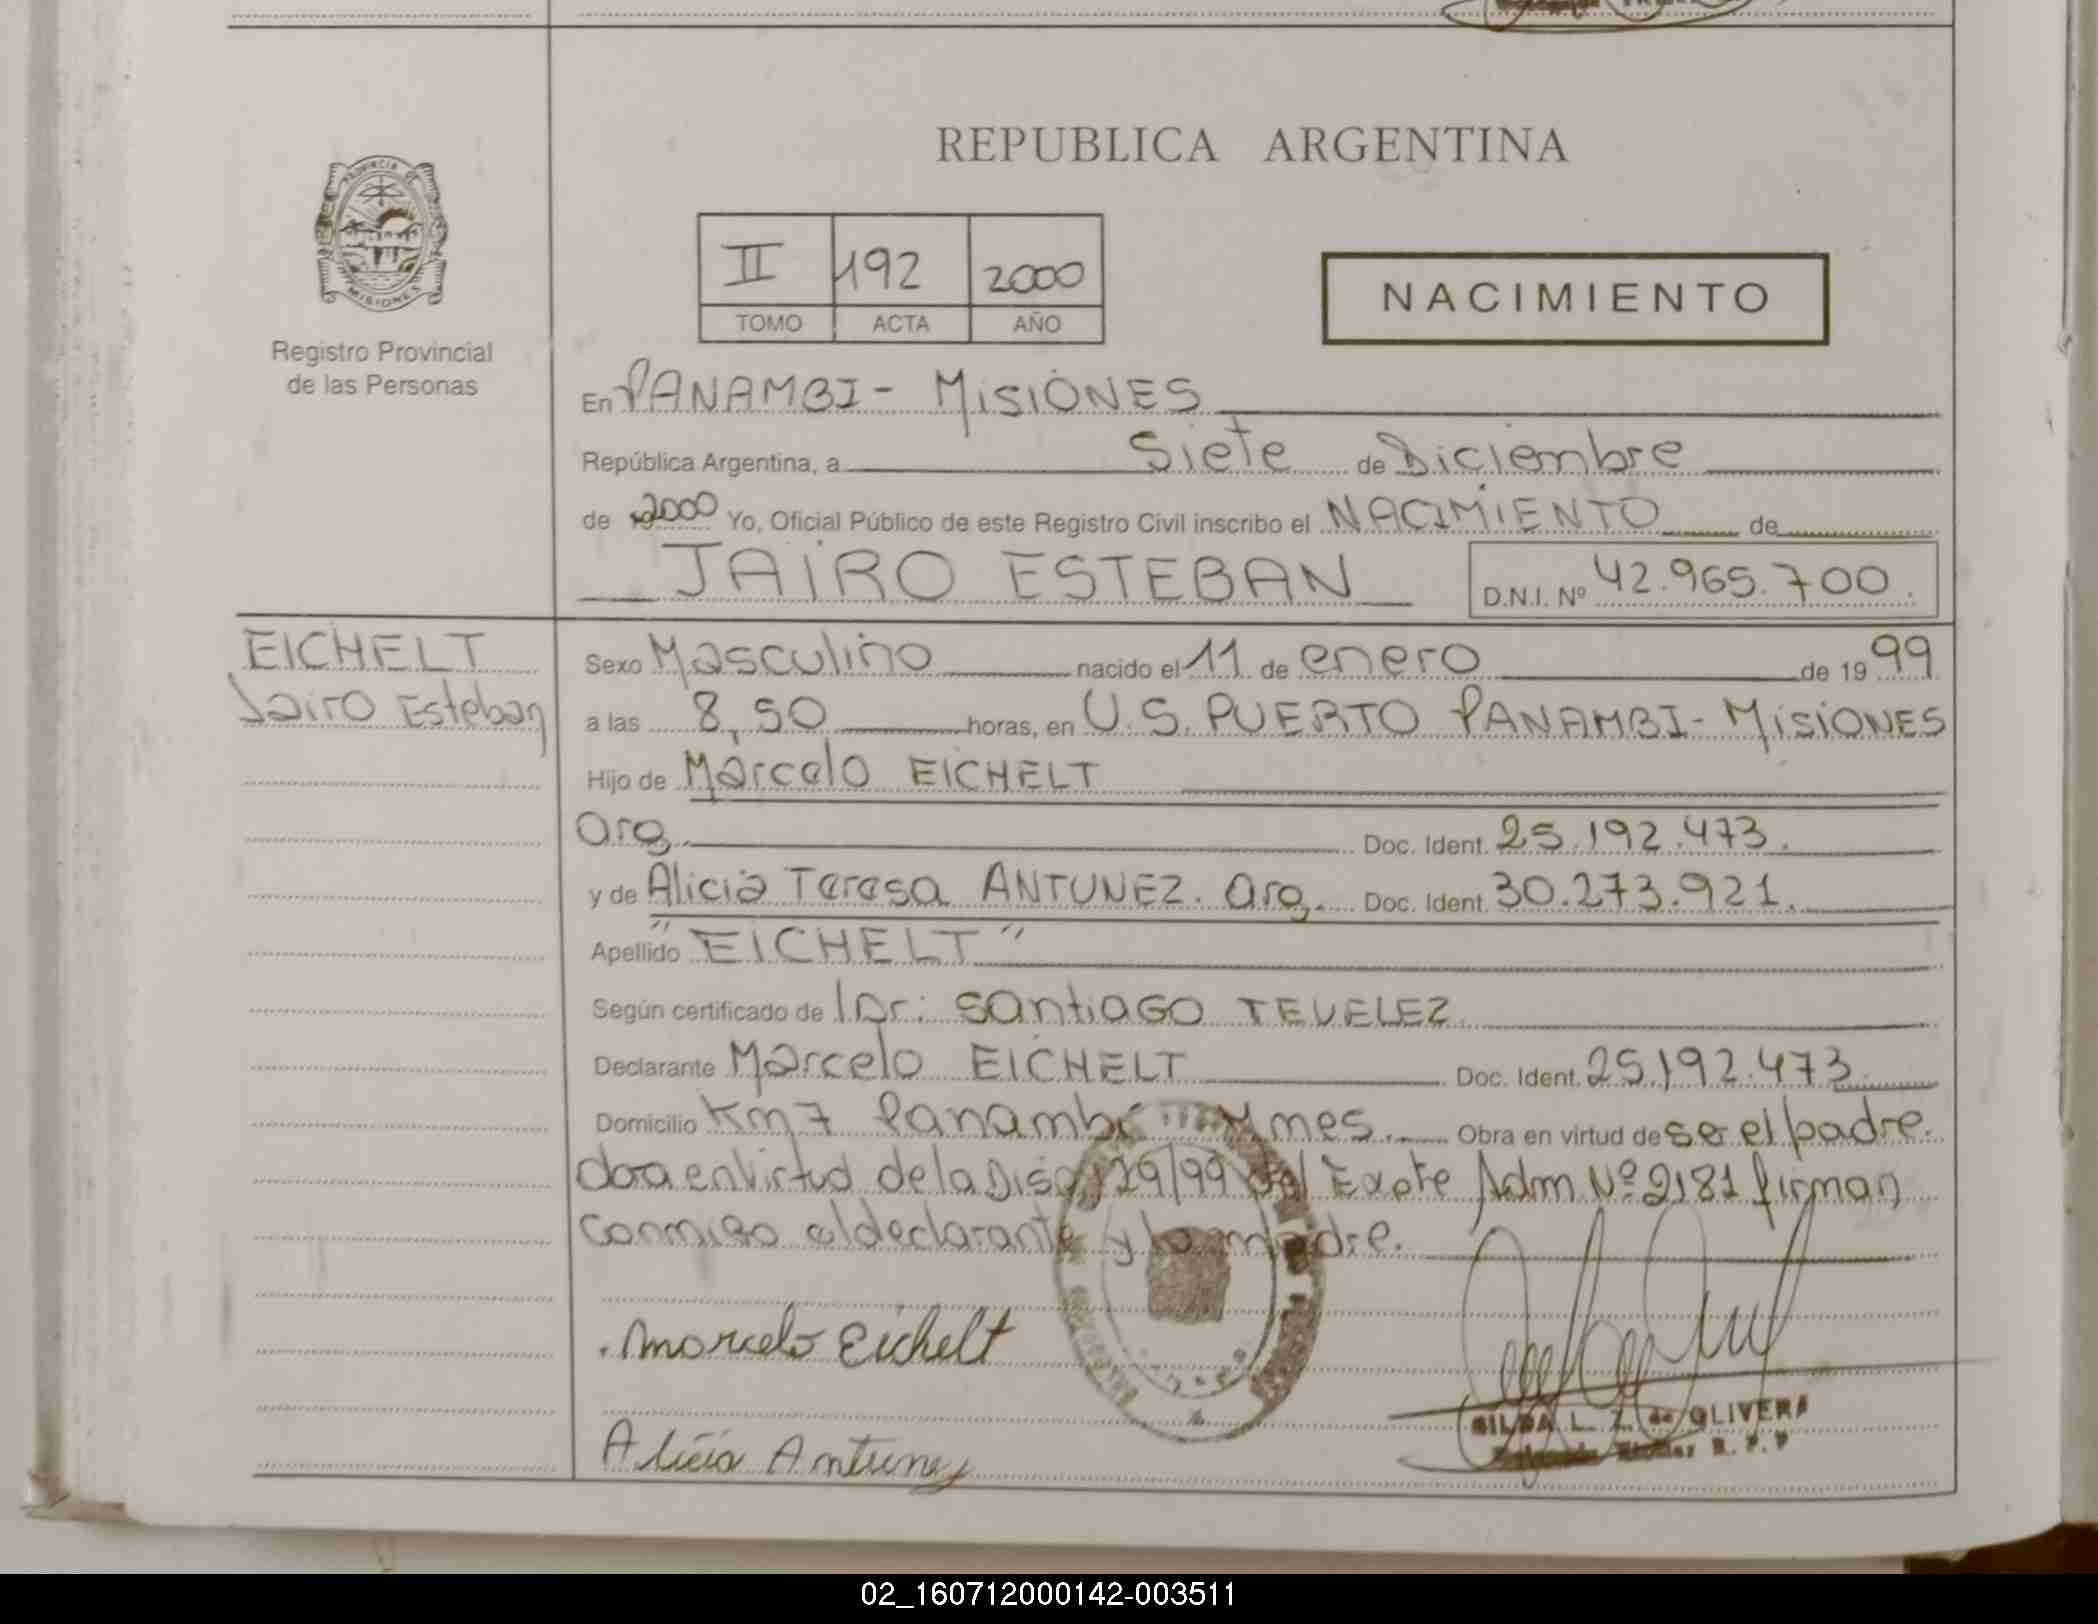 REPUBLICA ARGENTINA
PROVINCIA DE
MISIONES
Registro Provincial
de las Personas
II 192 2000
TOMO ACTA AÑO
NACIMIENTO
En PANAMBI - MISIONES
República Argentina, a Siete de Diciembre
de 2000 Yo, Oficial Público de este Registro Civil inscribo el NACIMIENTO de
JAIRO ESTEBAN D.N.I. Nº 42.965.700.
EICHELT
Jairo Esteban
Sexo Masculino nacido el 11 de enero de 1999
a las 8,50 horas, en U.S. PUERTO PANAMBI - MISIONES
Hijo de Marcelo EICHELT
arg. Doc. Ident. 25.192.473.
y de Alicia Teresa ANTUNEZ. arg. Doc. Ident. 30.273.921.
Apellido "EICHELT"
Según certificado de Dr: Santiago TEVELEZ
Declarante Marcelo EICHELT Doc. Ident. 25.192.473.
Domicilio Km 7 Panambi Mnes. Obra en virtud de ser el padre.
en virtud de la Disp. 129/99 del Expte Adm Nº 2181 firman
conmigo el declarante y la madre.
Marcelo Eichelt
Alicia Antunez
GILDA L. Z. de OLIVERA
R. P. P
02_160712000142-003511